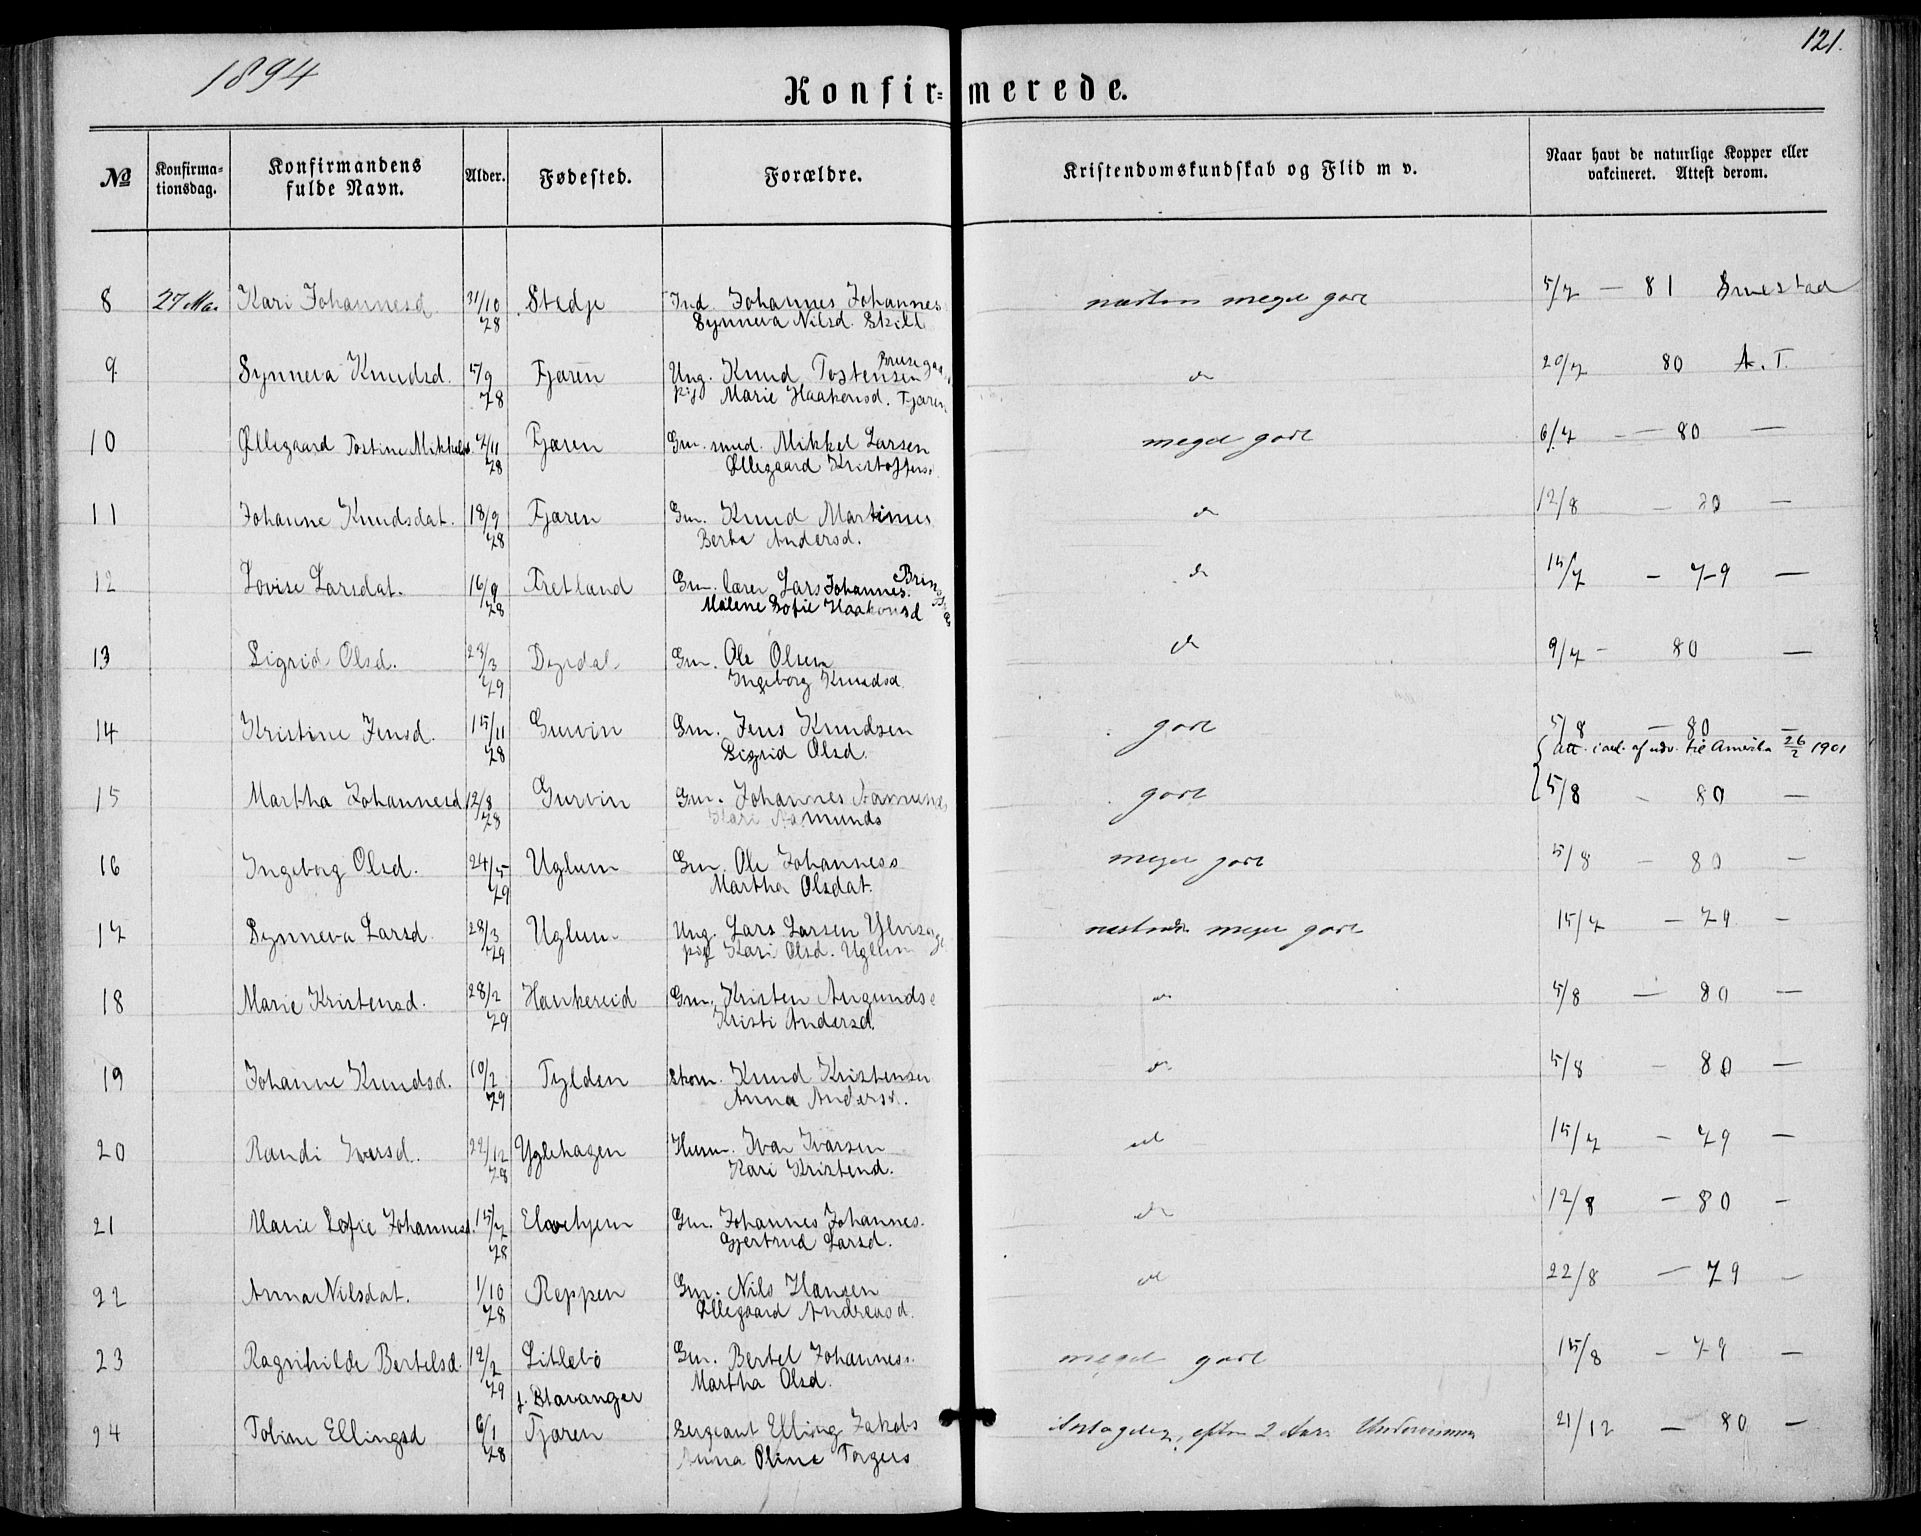 1894
121.
Konfir=merede.
№
Konfirma-
tionsdag.
Konfirmandens
fulde Navn.
Alder.
Fødested.
Forældre.
Kristendomskundskab og Flid m v.
Naar havt de naturlige Kopper eller
vakcineret. Attest derom.
8 27 Mai Kari Johannesd. 21/10 Stedje Ind. Johannes Johannes næsten meget godt 5/7 — 81
78 Synneva Nilsd.
9 Synneva Knudsd. 5/9 Fjæren Ung. Knud Tostensen do 20/7 80 A. T.
78 pig Marie Haakonsd. Fjæren
10 Øllegaard Tostine Mikkelsd. 4/11 Fjæren Gm. smed. Mikkel Larsen meget godt 6/7 — 80 —
78 Øllegaard Kristoffersd.
11 Johanne Knudsdat. 18/9 Fjæren Gm. Knud Martinus do 12/8 — 80 —
78 Berta Andersd.
12 Lovise Larsdat. 16/9 Fretland Gm. lærer Lars Johannes. do 15/7 — 79 —
78 Malene Sofie Haakonsd
13 Sigrid Olsd. 23/3 Dyrdal Gm. Ole Olsen do 9/7 — 80 —
79 Ingeborg Knudsd.
14 Kristine Jensd. 15/11 Gurvin Gm. Jens Knudsen godt 5/8 — 80 —
78 Sigrid Olsd.
Att. i anl. af udv. til Amerika 26/2 1901
15 Martha Johannesd 12/8 Gurvin Gm. Johannes Aamunds godt 5/8 — 80 —
78 Kari Aamunds
16 Ingeborg Olsd. 24/5 Uglum Gm. Ole Johanness meget godt 5/8 — 80 —
79 Martha Olsdat.
17 Synneva Larsd. 28/3 Uglum Ung. Lars Larsen meget godt 15/7 — 79 —
79 pig Kari Olsd. Uglum
18 Marie Kristensd. 28/2 Haukereid Gm. Kristen do 5/8 — 80 —
79 Kristi Andersd.
19 Johanne Knudsd. 10/2 Tylden Skom. Knud Kristensen do 5/8 — 80 —
79 Anna Andersd.
20 Randi Iversd. 22/12 Yglehagen Husm. Ivar Ivarsen do 15/7 — 79 —
78 Kari Kristend.
21 Marie Sofie Johannesd. 15/7 Elvehjem Gm. Johannes Johannes. do 12/8 — 80 —
78 Gjertrud Larsd.
22 Anna Nilsdat. 1/10 Reppen Gm. Nils Hansen do 22/8 — 79 —
78 Øllegaard Andreasd.
23 Ragnhilde Bertelsd. 12/2 Litlebø Gm. Bertel Johanness. meget godt 15/8 — 79 —
79 Martha Olsd.
f. Stavanger
24 Tobine Ellingsd 6/1 Fjæren Sergeant Elling Jakobs 21/12 — 80 —
78 Anna Oline Torgers